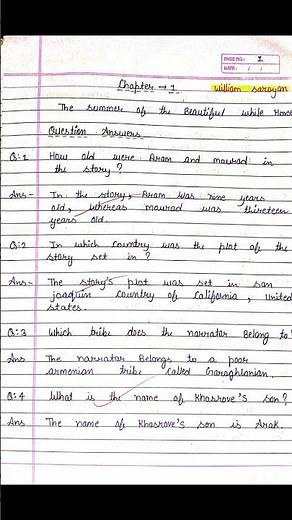 PAGE NO.: 1
DATE: / /
Chapter → 1 William saroyan
The summer of the Beautiful while Horse
Question Answers
Q:1 How old were Aram and mourad in
the story?
Ans- In the story, Aram was nine years
old, whereas mourad was thirteen
years old.
Q:2 In which Country was the plot of the
story set in?
Ans- The story's plot was set in san
joaquin country of California, United
states.
Q:3 Which tribe does the narrator Belong to
Ans The narrator Belongs to a poor
armenian tribe called Garoghlanian.
Q:4 What is the name of Khosrove's son?
Ans The name of Khosrove's son is Arak.